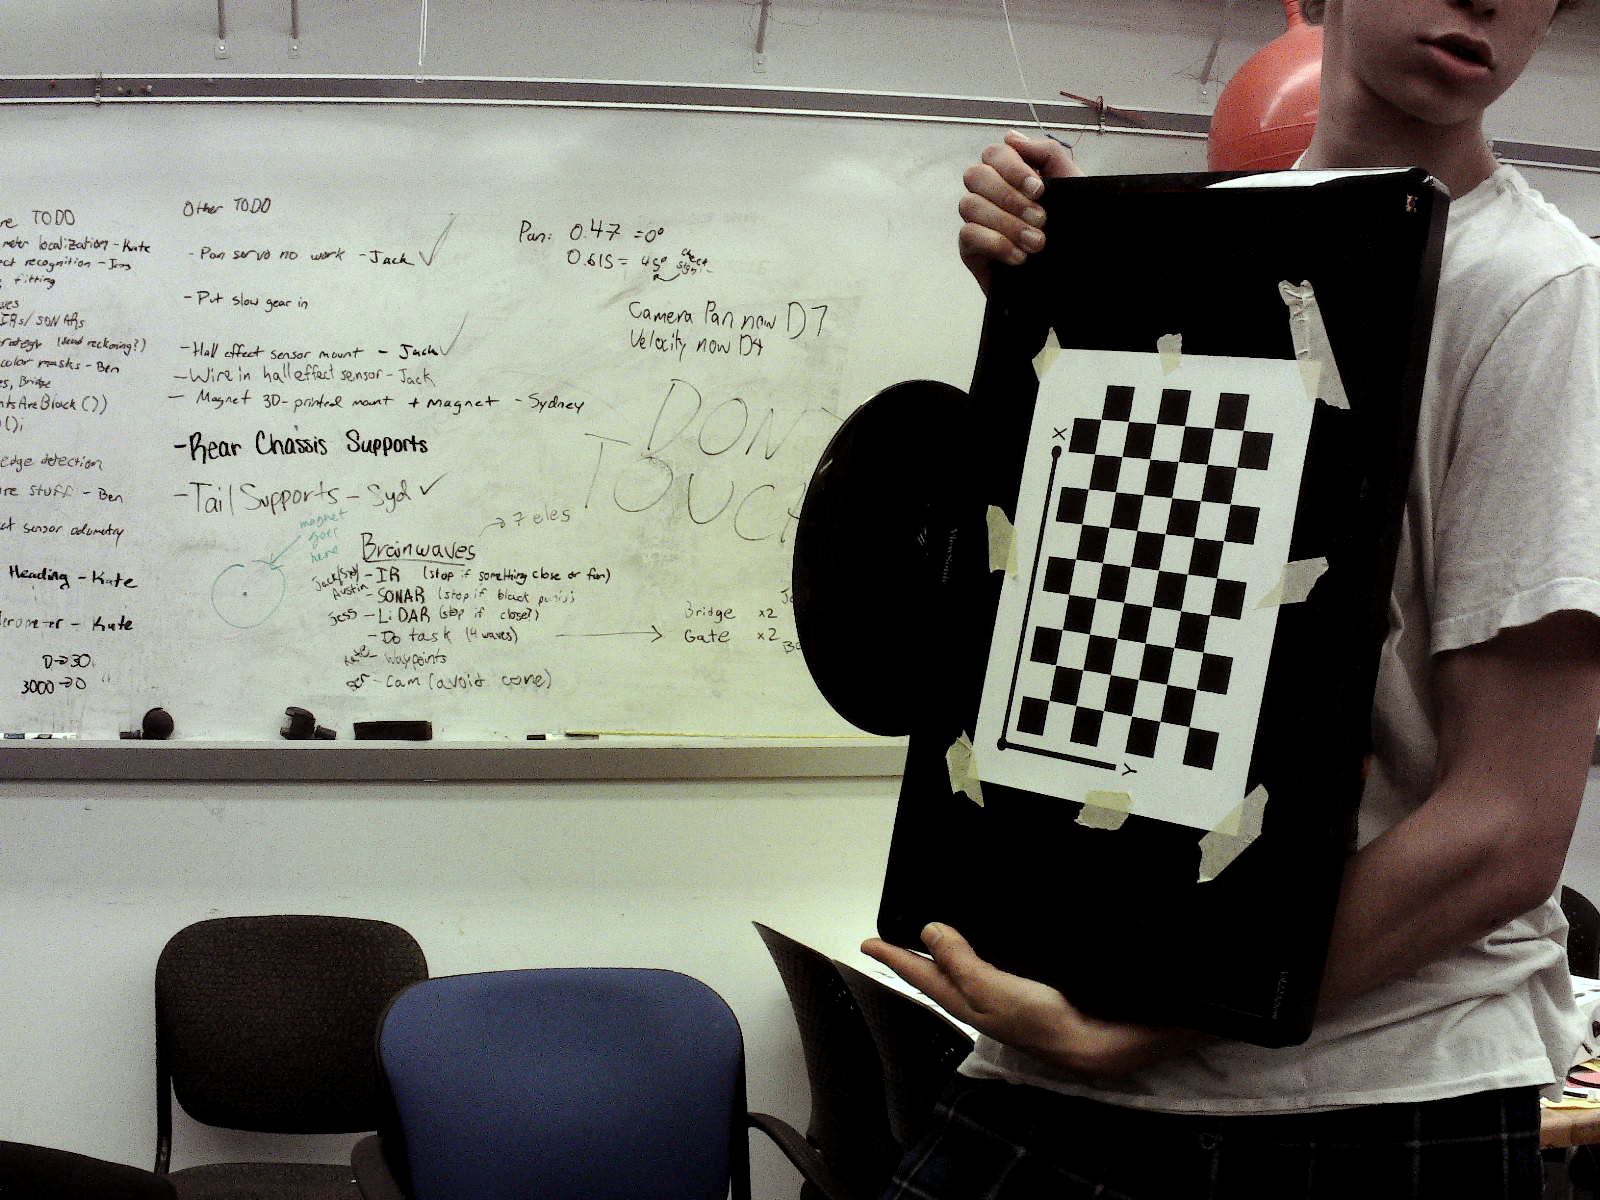 TODO
meter localization - Kate
recognition - Jess
fitting
IRs/SONARs
(dead reckoning?)
color masks - Ben
Bridge
ntsAreBlack())
edge detection
stuff - Ben
sensor odometry
Heading - Kate
- Kate
0→30
3000→0
Other TODO
- Pan servo no work - Jack ✓
- Put slow gear in
- Hall effect sensor mount - Jack ✓
- Wire in hall effect sensor - Jack
- Magnet 3D-printed mount + magnet - Sydney
- Rear Chassis Supports
- Tail Supports - Syd ✓
magnet
goes
here
Brainwaves
→ 7 eles
Jack/Syd - IR (stop if something close or far)
Austin - SONAR (stop if black
Jess - LiDAR (stop if close?)
- Do task (4 waves) →
- Waypoints
- Cam (avoid cone)
Bridge x2
Gate x2
Pan: 0.47 = 0°
0.615 = 45° check
Camera Pan now D7
Velocity now D4
DON'T
TOUCH
X
Y
ViewSonic